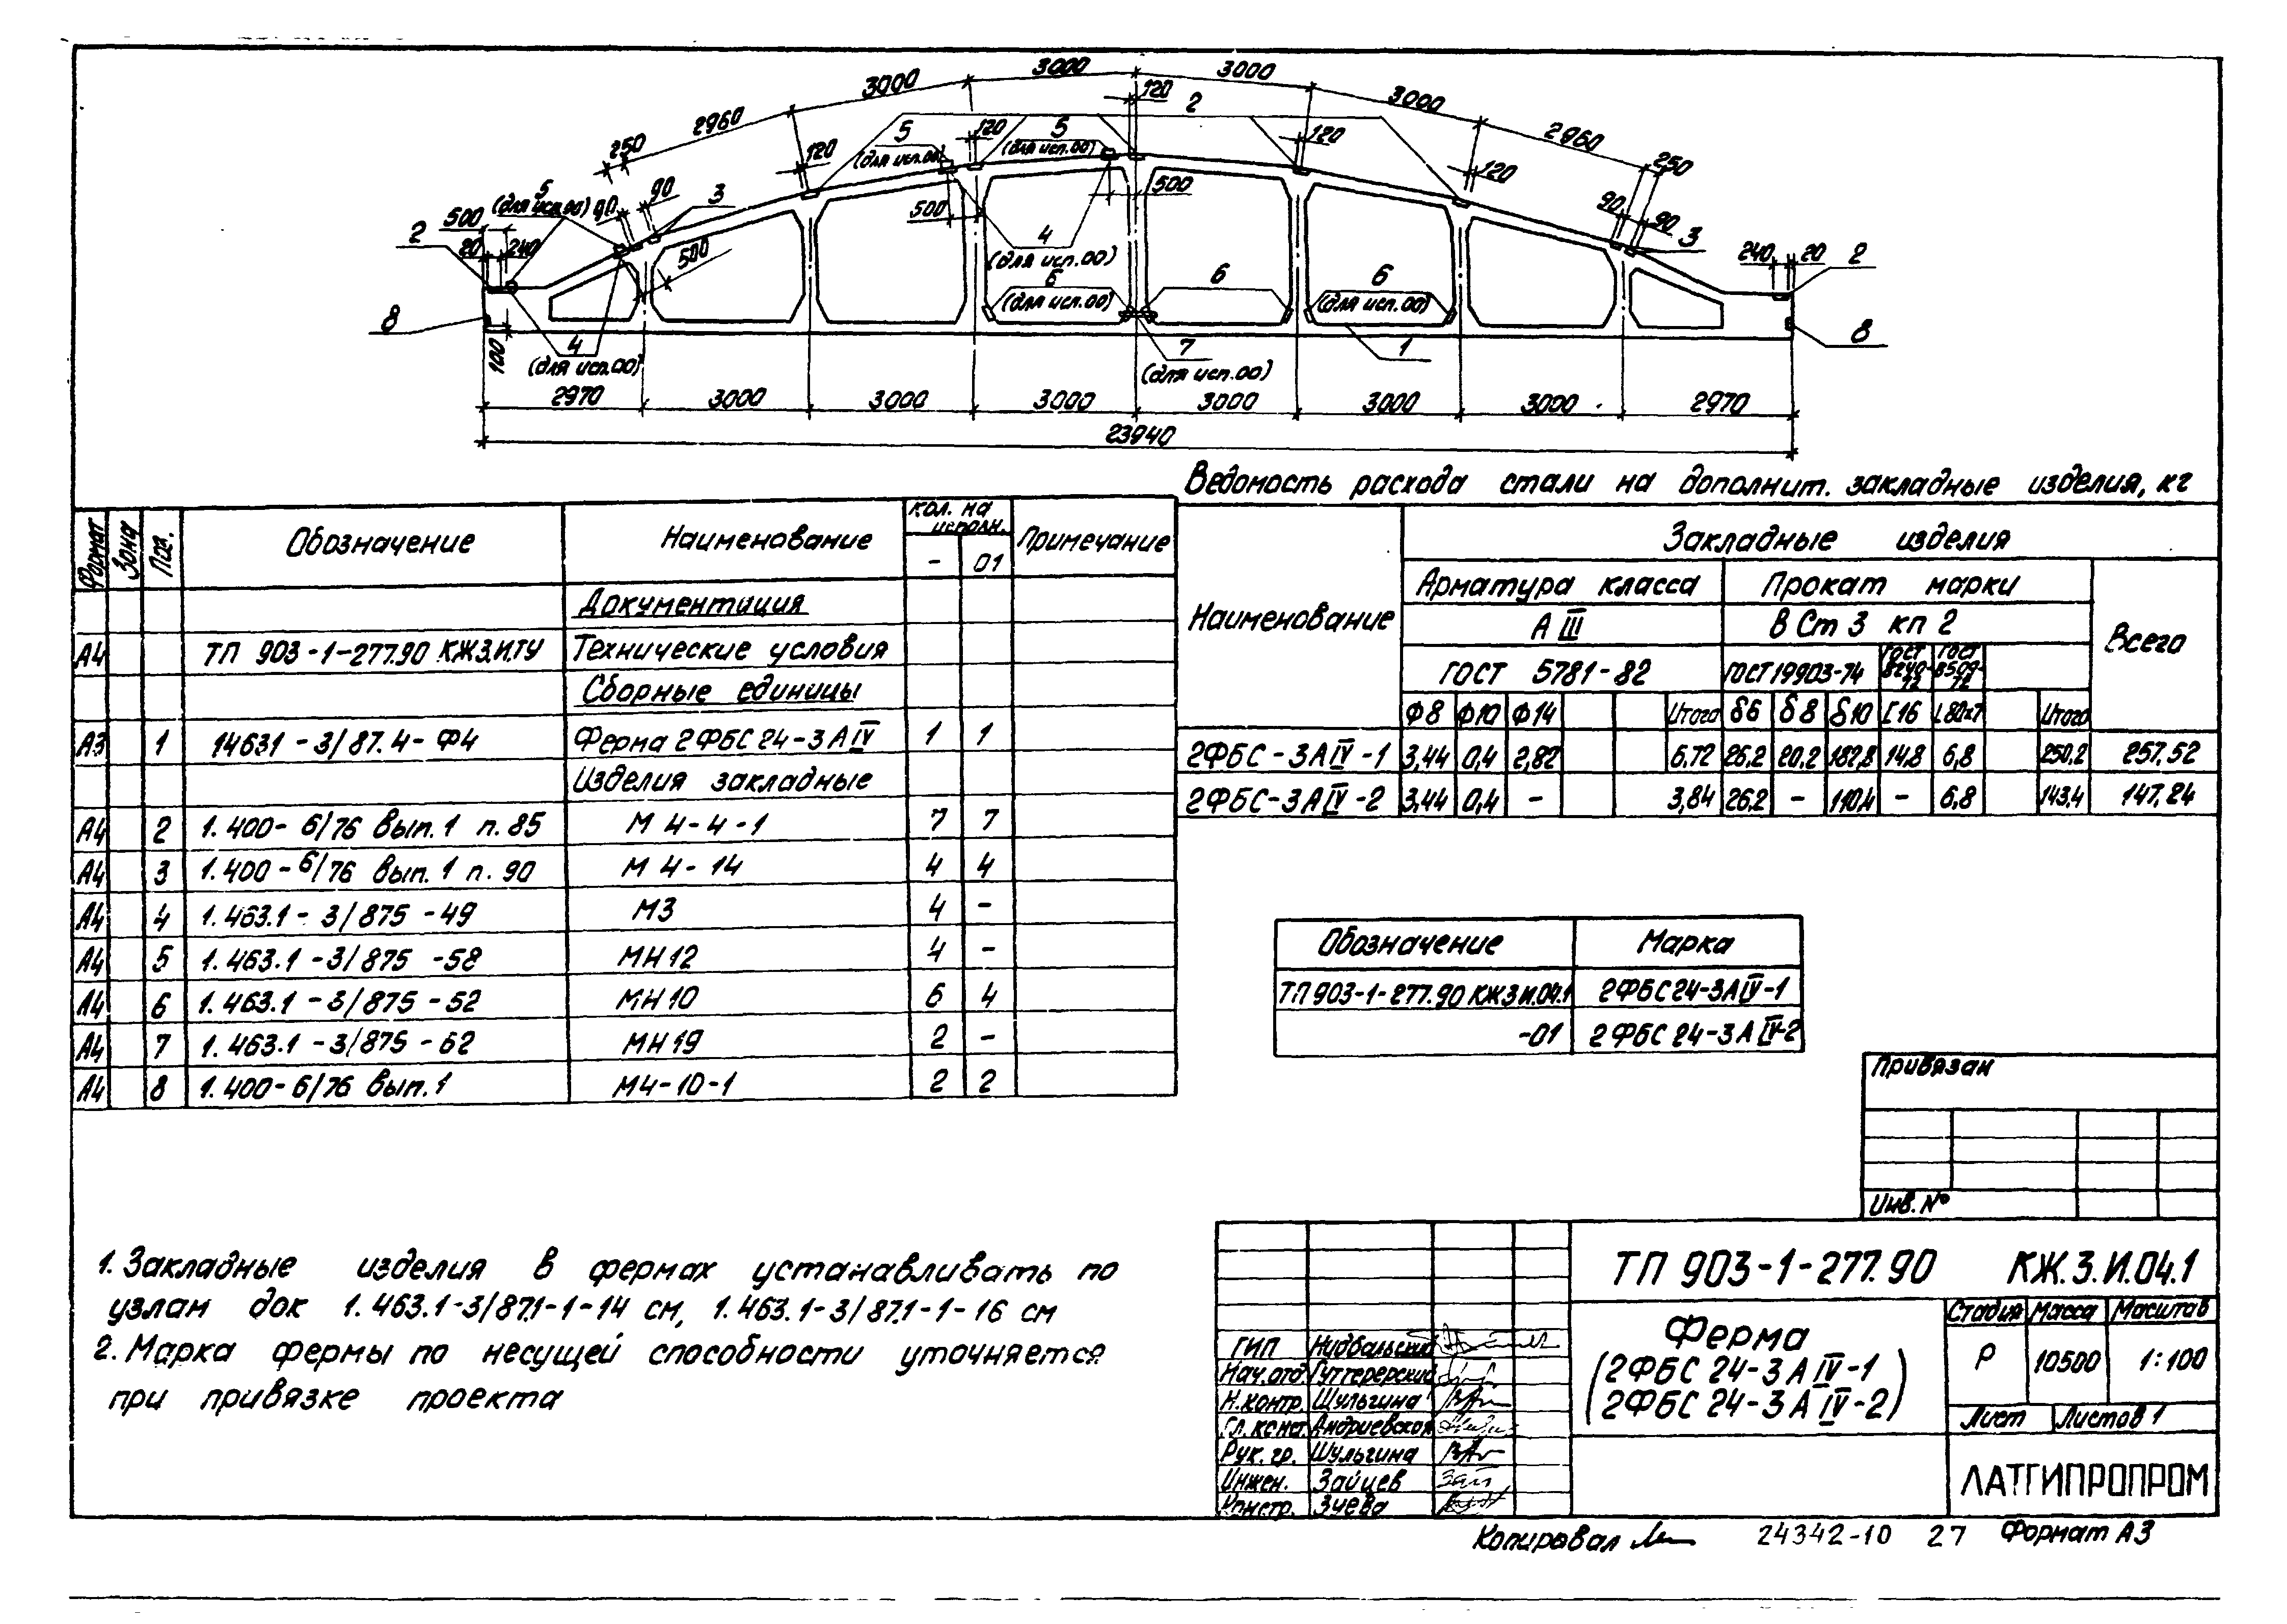 3000 3000 3000 3000
2960 2960
250 250
120 120 120 120 120
2
5 5
(для исп.00) (для исп.00)
90 90 3
500 500 500
5
(для исп.00)
500
2 20 240
90 90 3
240 20 2
4
(для исп.00)
6 6 6
(для исп.00) (для исп.00)
8 8
100
4
(для исп.00)
7
(для исп.00)
1
2970 3000 3000 3000 3000 3000 3000 2970
23940
Ведомость расхода стали на дополнит. закладные изделия, кг
Формат Зона Поз. Обозначение Наименование Кол. на исполн. Примечание
- 01
Документация
А4 ТП 903-1-277.90 КЖ3.И.ТУ Технические условия
Сборные единицы
А3 1 14631-3/87.4-Ф4 Ферма 2ФБС 24-3АIV 1 1
Изделия закладные
А4 2 1.400-6/76 вып.1 п.85 М 4-4-1 7 7
А4 3 1.400-6/76 вып.1 п.90 М 4-14 4 4
А4 4 1.463.1-3/875-49 М3 4 -
А4 5 1.463.1-3/875-58 МН12 4 -
А4 6 1.463.1-3/875-52 МН10 6 4
А4 7 1.463.1-3/875-62 МН19 2 -
А4 8 1.400-6/76 вып.1 М4-10-1 2 2
Наименование Закладные изделия
Арматура класса Прокат марки Всего
А III В Ст 3 кп 2
ГОСТ 5781-82 ГОСТ 19903-74 ГОСТ 8240-72 ГОСТ 8509-72
Ф8 Ф10 Ф14 Итого δ6 δ8 δ10 [16 L80х7 Итого
2ФБС-3АIV-1 3,44 0,4 2,82 6,72 26,2 20,2 182,8 14,8 6,8 250,2 257,52
2ФБС-3АIV-2 3,44 0,4 - 3,84 26,2 - 110,4 - 6,8 143,4 147,24
Обозначение Марка
ТП 903-1-277.90 КЖ3И.04.1 2ФБС24-3АIV-1
-01 2ФБС 24-3АIV-2
Привязан
Инв. №
1. Закладные изделия в фермах устанавливать по
узлам док 1.463.1-3/87.1-1-14 см, 1.463.1-3/87.1-1-16 см
2. Марка фермы по несущей способности уточняется
при привязке проекта
ТП 903-1-277.90 КЖ.3.И.04.1
Ферма
(2ФБС 24-3АIV-1
2ФБС 24-3АIV-2)
Стадия Масса Масштаб
Р 10500 1:100
Лист Листов 1
ЛАТГИПРОПРОМ
ГИП Нидбальский
Нач.отд. Гуттерерский
Н.контр. Шульгина
Гл.конст. Андриевская
Рук. гр. Шульгина
Инжен. Зайцев
Констр. Зуева
Копировал 24342-10 27 Формат А3